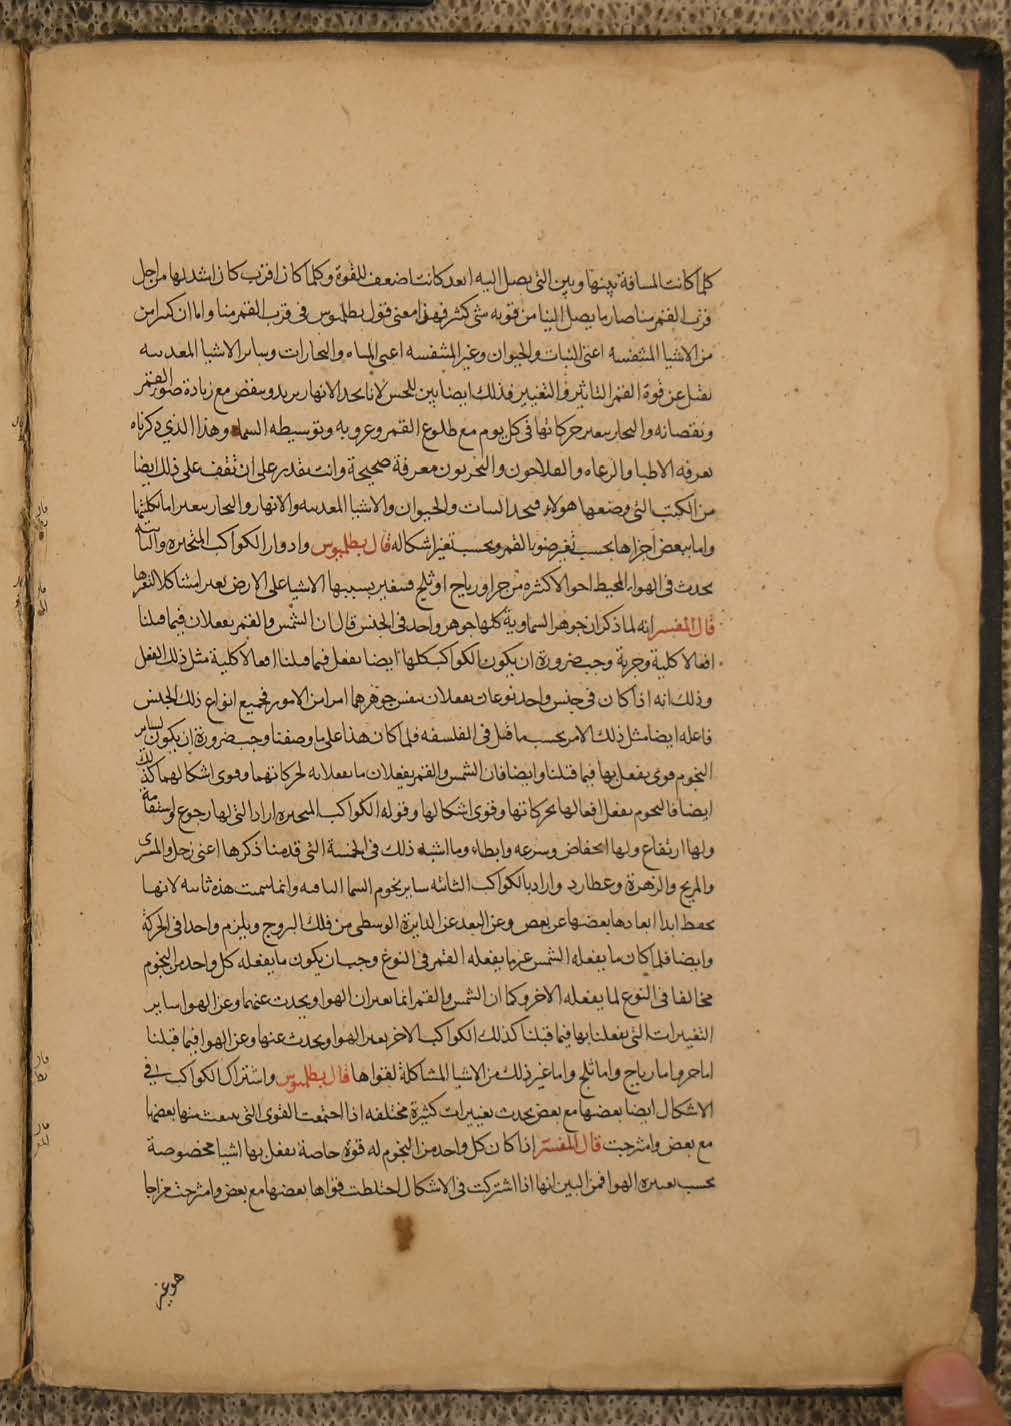 كلما كانت المسافة بينها وبين التى يصل اليه ابعد كانت اضعف للقوة وكلما كان اقرب كان اشد لها من اجل
قرب القمر منا صار ما يصل الينا من قوته شى كثير فهذا معنى قول بطلميوس فى قرب القمر منا واما ان كثيرا من
من الاشيا المتنفسه اعنى النبات والحيوان وغير المتنفسه اعنى المياه والبحارات وساير الاشيا المعدنيه
تقبل عن قوة القمر التاثير والتغيير فذلك ايضا بين للحس لانا نجد الانهار يزيد وينقص مع زيادة ضو القمر
ونقصانه والبحار يتغير حركاتها فى كل يوم مع طلوع القمر وغروبه وتوسيطه السماء وهذا الذي ذكرناه
يعرفه الاطبا والرعاه والفلاحون والبحريون معرفة صحيحة وانت تقدر على ان تقف على ذلك ايضا
من الكتب التى وضعها هولاء فتجد النبات والحيوان والاشيا المعدنيه والانهار والبحار يتغير اما كليتها
واما بعض اجزاها بحسب تغير ضو القمر وبحسب تغير اشكاله قال بطلميوس وادوار الكواكب المتحيره والثابته
يحدث فى الهواء المحيط احوالا كثيره من حر او رياح او ثلج فيتغير بسببها الاشيا على الارض تغيرا مشاكلا لتغيرها
قال المفسر انه لما ذكر ان جوهر السماوية كلها جوهر واحد فى الجنس قال ان الشمس والقمر يفعلان فيما قبلنا
افعالا كلية وجزية وجب ضرورة ان يكون الكواكب كلها ايضا يفعل فيما قبلنا افعالا كلية مثل ذلك الفعل
وذلك انه اذا كان فى جنس واحد نوعان يفعلان بنفس جوهرهما امرا من الامور فجميع انواع ذلك الجنس
فاعله ايضا مثل ذلك الامر بحسب ما قيل فى الفلسفه فلما كان هذا على ما وصفنا وجب ضرورة ان يكون لساير
النجوم قوى يفعل بها فيما قبلنا وايضا فان الشمس والقمر يفعلان ما يفعلانه لحركاتهما وقوى اشكالهما كذلك
ايضا فالنجوم يفعل افعالها بحركاتها وقوى اشكالها وقوله الكواكب المتحيره اراد التى لها رجوع واستقامة
ولها ارتفاع ولها انخفاض وسرعه وابطاء وما اشبه ذلك فى الخمسة التى قدمنا ذكرها اعنى زحل والمشترى
والمريخ والزهرة وعطارد واراد بالكواكب الثابته ساير نجوم السما الباقيه وانما سميت هذه ثابته لانها
يحفظ ابدا ابعادها بعضها عن بعض وعن البعد عن الدايرة الوسطى من فلك البروج ويلزم واحدا فى الحركة
وايضا فلما كان ما يفعله الشمس غير ما يفعله القمر فى النوع وجب ان يكون ما يفعله كل واحد من النجوم
مخالفا فى النوع لما يفعله الاخر وكما ان الشمس والقمر انما يغيران الهوا ويحدث عنهما وعن الهوا ساير
التغييرات التى يفعلنا بها فيما قبلنا كذلك الكواكب الاخر يغير الهوا ويحدث عنها وعن الهوا فيما قبلنا
اما حر واما رياح واما ثلج واما غير ذلك من الاشيا المشاكلة لقواها قال بطلميوس واشتراك الكواكب فى
الاشكال ايضا بعضها مع بعض يحدث تغييرات كثيرة مختلفه اذا اجتمعت القوى التى ينبعث منها بعضها
مع بعض وامتزجت قال المفسر اذا كان كل واحد من النجوم له قوة خاصة يفعل بها اشيا مخصوصة
بحسب تغييره الهوا فمن البين انها اذا اشتركت فى الاشكال اختلطت قواها بعضها مع بعض وامتزجت مزاجا
هو غير